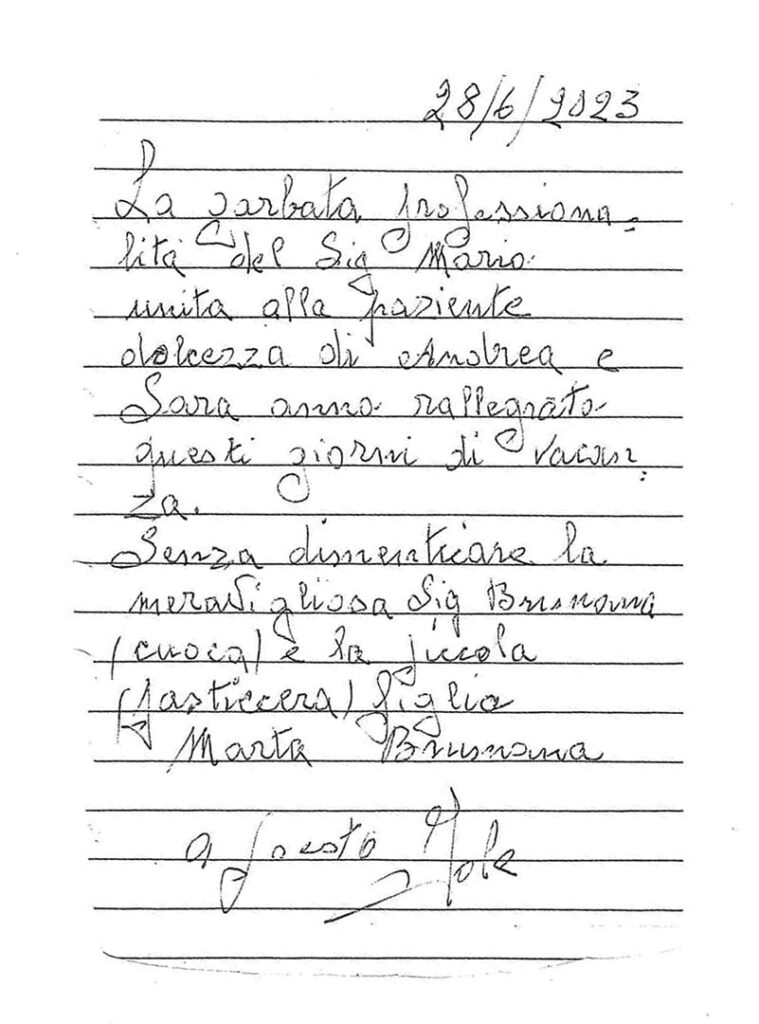 28/6/2023
La garbata professiona=
lità del Sig Mario
unita alla paziente
dolcezza di Andrea e
Sara anno rallegrato
questi giorni di vacan
za.
Senza dimenticare la
meravigliosa Sig Brunona
(cuoca) e la piccola
(pasticcera) figlia
Marta Brunona
a presto